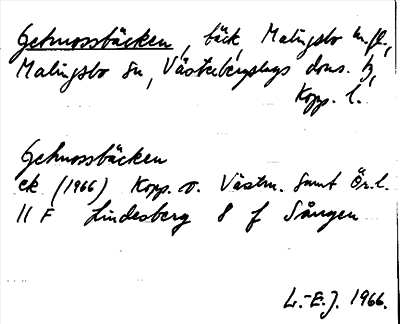 Getmossbäcken, bäck, Malingsbo m.fl.,
Malingsbo sn, Västerbergslags doms. tg,
Kopp. l.
Getmossbäcken
ek (1966) Kopp. o. Västm. samt Ör. l.
11 F Lindesberg 8 f Sången
L.-E.J. 1966.